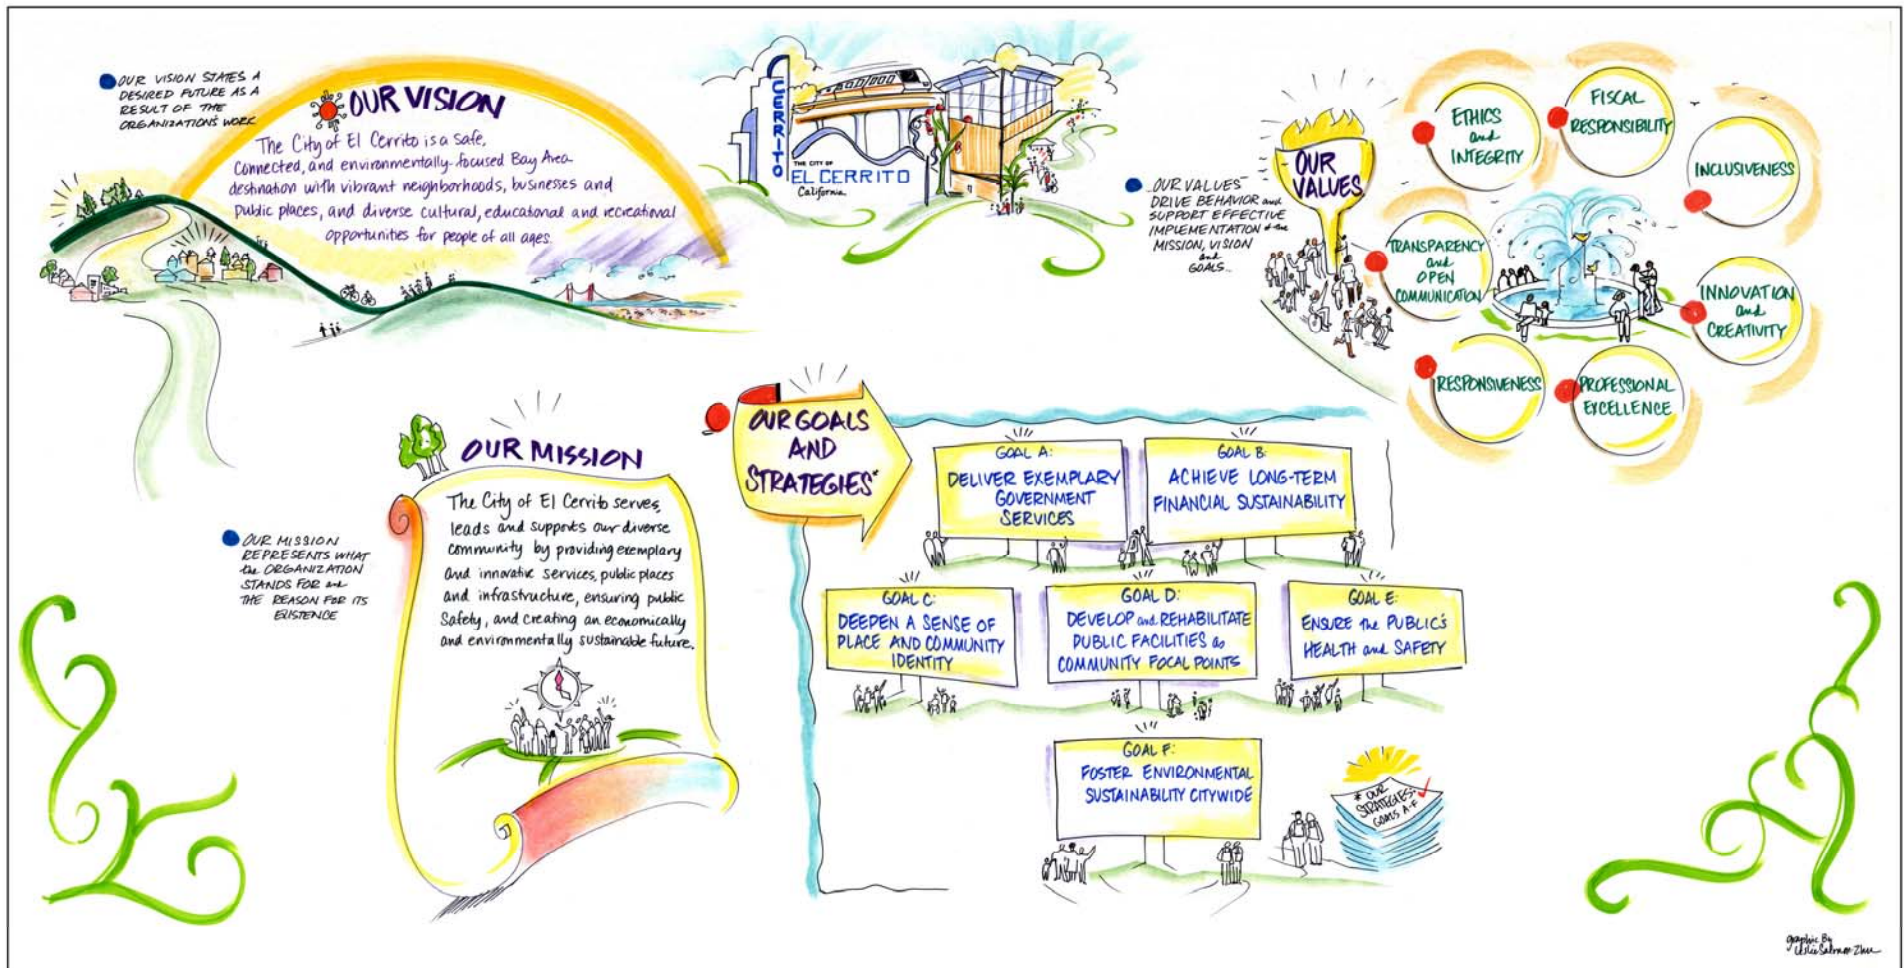 OUR VISION STATES A
DESIRED FUTURE AS A
RESULT OF THE
ORGANIZATION'S WORK
OUR VISION
The City of El Cerrito is a Safe,
Connected, and environmentally-focused Bay Area
destination with vibrant neighborhoods, businesses and
public places, and diverse cultural, educational and recreational
opportunities for people of all ages.
CERRITO
THE CITY OF
EL CERRITO
California
OUR VALUES
DRIVE BEHAVIOR and
SUPPORT EFFECTIVE
IMPLEMENTATION of the
MISSION, VISION
and
GOALS...
OUR
VALUES
ETHICS
and
INTEGRITY
FISCAL
RESPONSIBILITY
INCLUSIVENESS
TRANSPARENCY
and
OPEN
COMMUNICATION
INNOVATION
and
CREATIVITY
RESPONSIVENESS
PROFESSIONAL
EXCELLENCE
OUR MISSION
REPRESENTS WHAT
the ORGANIZATION
STANDS FOR and
THE REASON FOR ITS
EXISTENCE
OUR MISSION
The City of El Cerrito serves,
leads and supports our diverse
community by providing exemplary
and innovative services, public places
and infrastructure, ensuring public
Safety, and creating an economically
and environmentally sustainable future.
OUR GOALS
AND
STRATEGIES*
GOAL A:
DELIVER EXEMPLARY
GOVERNMENT
SERVICES
GOAL B:
ACHIEVE LONG-TERM
FINANCIAL SUSTAINABILITY
GOAL C:
DEEPEN A SENSE OF
PLACE AND COMMUNITY
IDENTITY
GOAL D:
DEVELOP and REHABILITATE
PUBLIC FACILITIES as
COMMUNITY FOCAL POINTS
GOAL E:
ENSURE the PUBLIC'S
HEALTH and SAFETY
GOAL F:
FOSTER ENVIRONMENTAL
SUSTAINABILITY CITYWIDE
* OUR
STRATEGIES:
GOALS A-F
graphic By
Leslie Salmon-Zhu